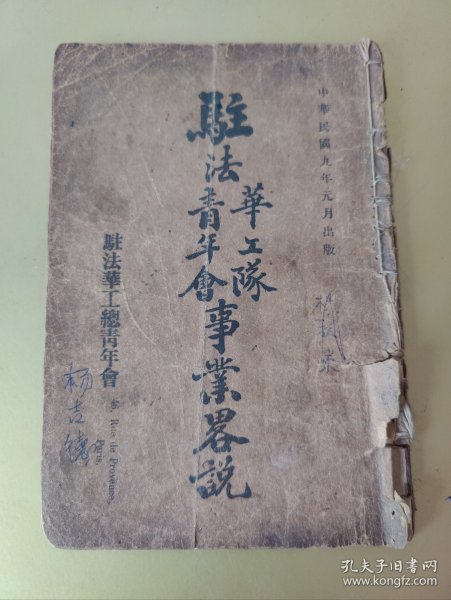 中華民國九年元月出版
駐法華工隊青年會事業畧説
駐法華工總青年會
46, Rue de Provence,
Paris
孔夫子旧书网
www.kongfz.com